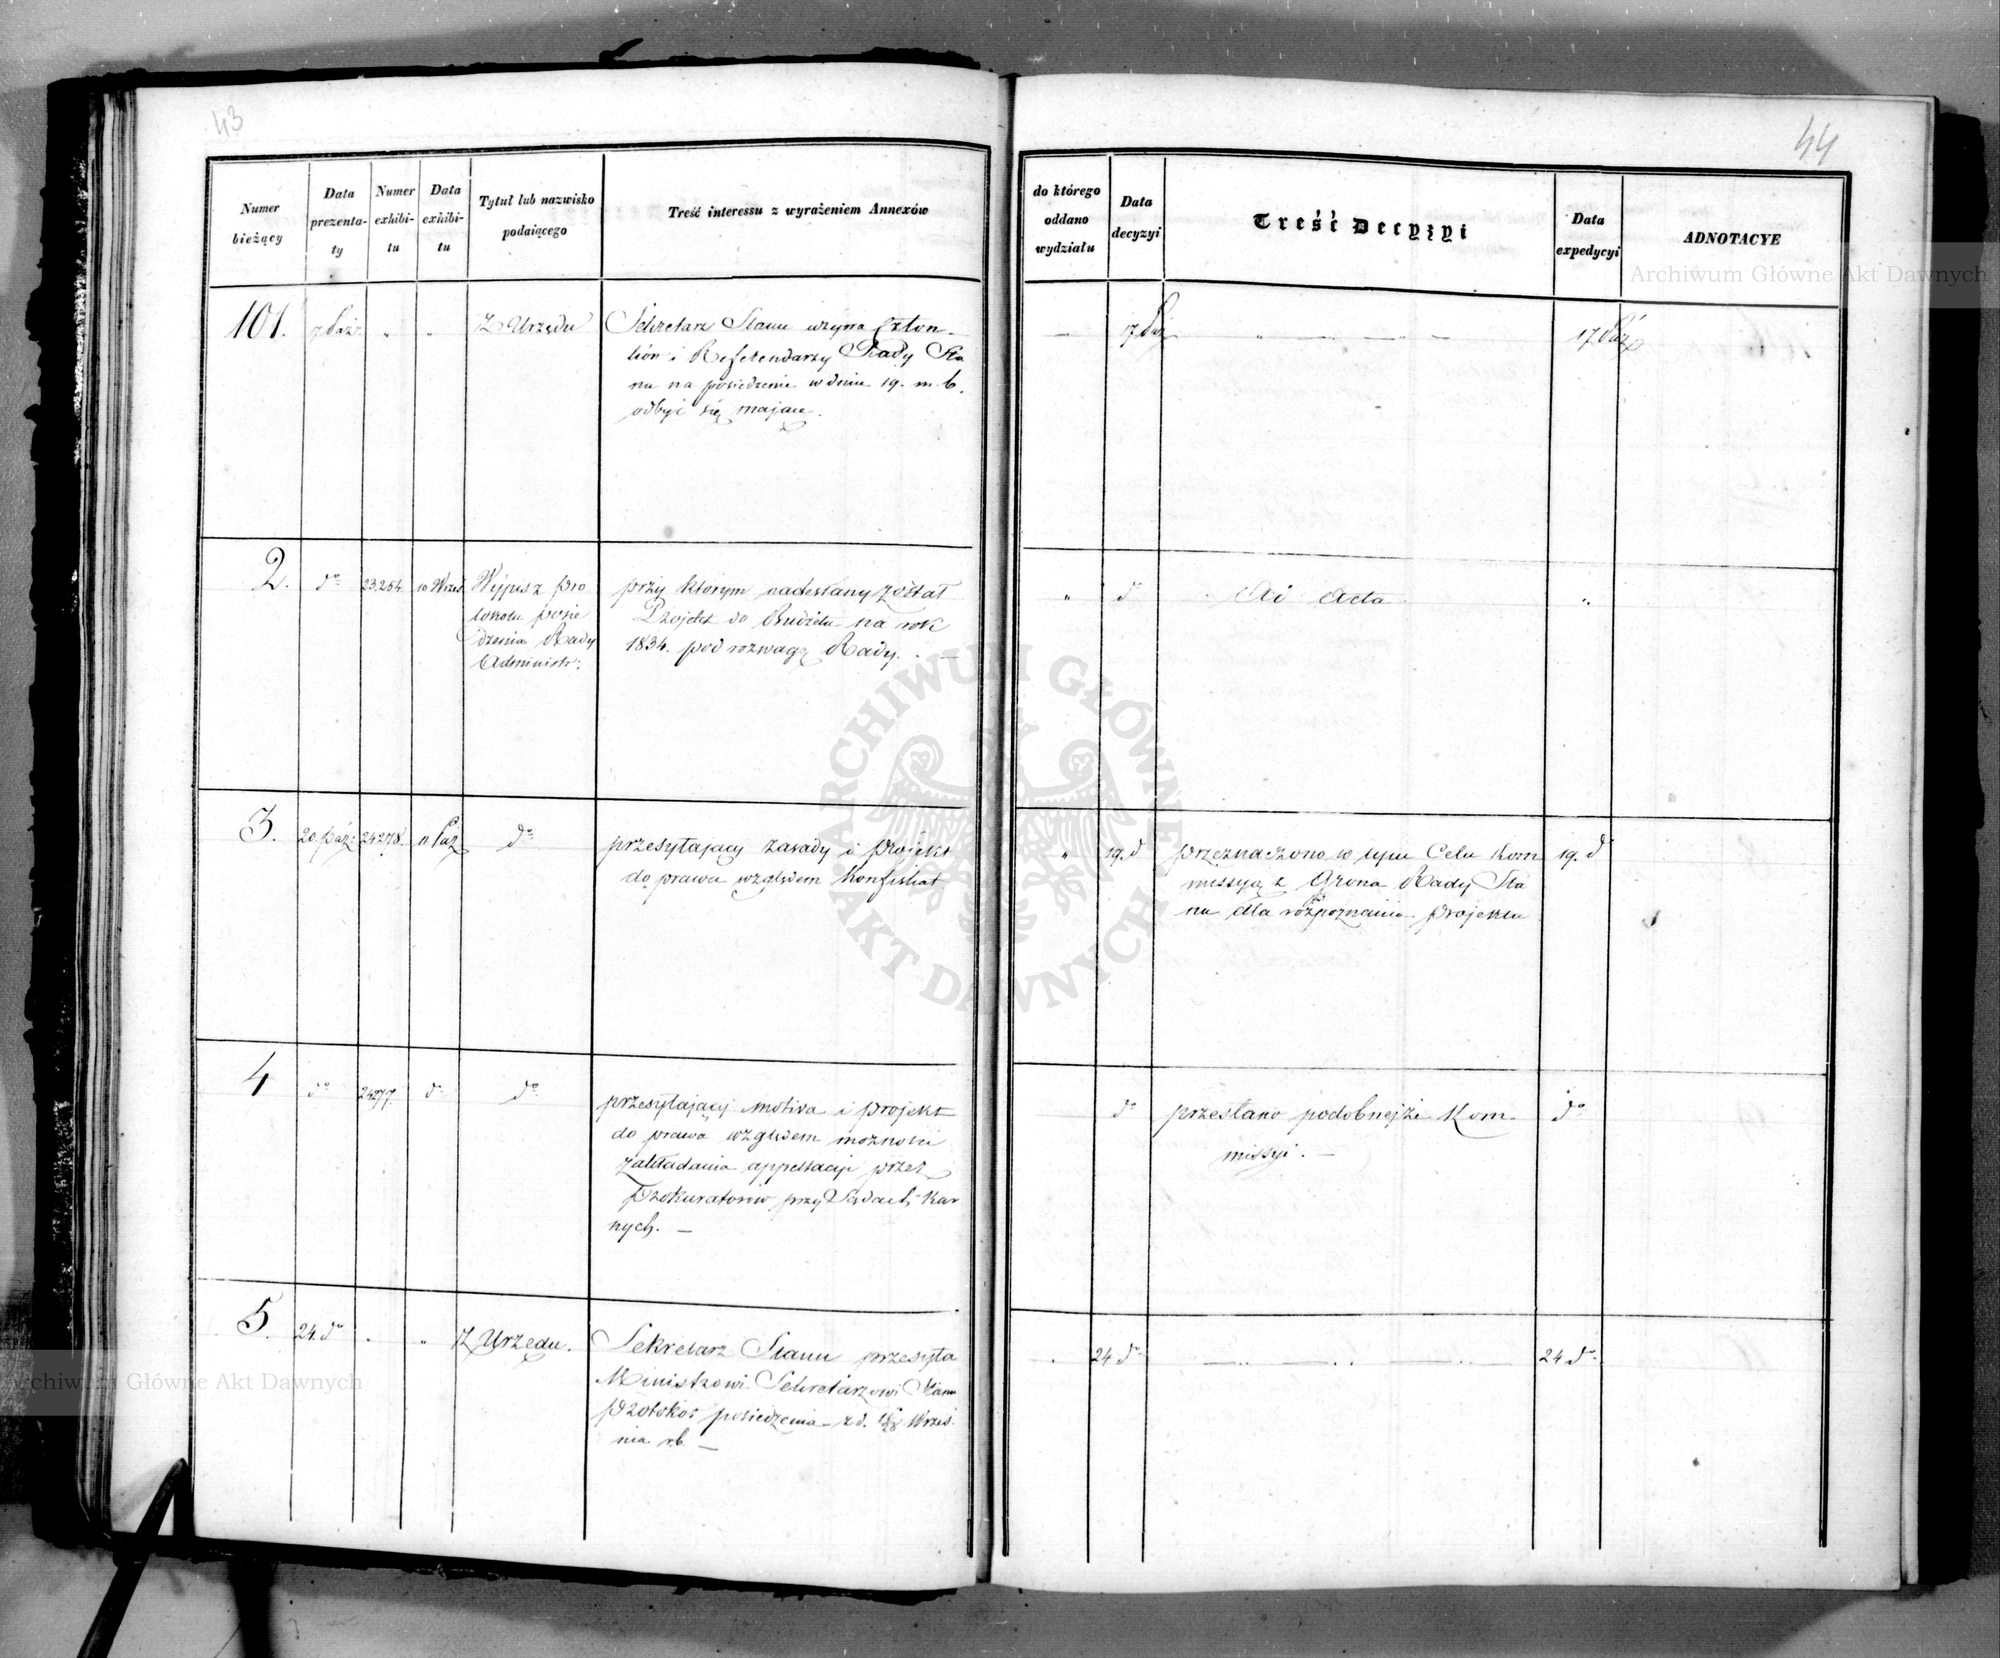 43
Numer bieżący
Data prezenta-ty
Numer exhibi-tu
Data exhibi-tu
Tytuł lub nazwisko podaiącego
Treść interessu z wyrażeniem Annexów
101.
17 Paź.
Z Urzędu
Sekretarz Stanu wzywa Człon-
ków i Referendarzy Rady Sta
nu na posiedzenie w dniu 19. m. b.
odbyć się mające.
2.
do
23254
10 Wrześ
Wypis z Pro
tokołu posie
dzenia Rady
Administr:
przy którym nadesłany został
Projekt do Budżetu na rok
1834. pod rozwagę Rady. —
3.
20. Paź:
24278.
11 Paź
do
przesyłający zasady i projekt
do prawa względem konfiskat
4
do
24277.
do
do
przesyłający motiva i projekt
do prawa względem możności
zakładania appellacyi przez
Prokuratorów przy Sądach Kar
nych. —
5.
24. do
Z Urzędu.
Sekretarz Stanu przesyła
Ministrowi Sekretarzowi Stanu
Protokół posiedzenia z d. Wrześ
nia r.b. —
44
do którego oddano wydziału
Data decyzyi
Treść Decyzyi
Data expedycyi
ADNOTACYE
17 Paź
17 Paź
d
Ad Acta
19. d
przeznaczono w tym Celu Kom
missyą z Grona Rady Sta
nu dla rozpoznania projektu
19. d
do
przesłano podobnejże Kom
missyi. —
do
24 do
24 do
Archiwum Główne Akt Dawnych
ARCHIWUM GŁÓWNE AKT DAWNYCH
Archiwum Główne Akt Dawnych